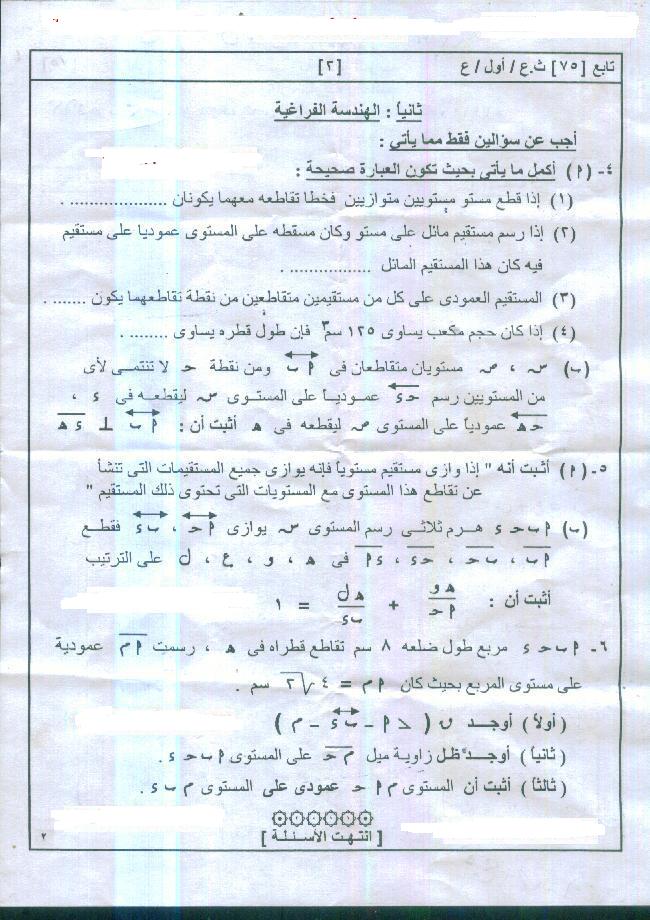 تابع [٧٥] ث.ع / أول / ع
[٢]
ثانياً : الهندسة الفراغية
أجب عن سؤالين فقط مما يأتى :
٤- (أ) أكمل ما يأتى بحيث تكون العبارة صحيحة :
(١) إذا قطع مستو مستويين متوازيين فخطا تقاطعه معهما يكونان .................... .
(٢) إذا رسم مستقيم مائل على مستو وكان مسقطه على المستوى عموديا على مستقيم
فيه كان هذا المستقيم المائل ................. .
(٣) المستقيم العمودى على كل من مستقيمين متقاطعين من نقطة تقاطعهما يكون ....... .
(٤) إذا كان حجم مكعب يساوى ١٢٥ سم٣ فإن طول قطره يساوى ........ .
(ب) س ، ص مستويان متقاطعان فى أب ومن نقطة حـ لا تنتمى لأى
من المستويين رسم حـء عموديا على المستوى س ليقطعه فى ء ،
حـهـ عمودياً على المستوى ص ليقطعه فى هـ أثبت أن : أب ⊥ ءهـ
٥- (أ) أثبت أنه " إذا وازى مستقيم مستوياً فإنه يوازى جميع المستقيمات التى تنشأ
عن تقاطع هذا المستوى مع المستويات التى تحتوى ذلك المستقيم "
(ب) أ ب حـ ء هرم ثلاثى رسم المستوى س يوازى أحـ ، بء فقطع
أب ، بحـ ، حـء ، ءأ فى هـ ، و ، ع ، ل على الترتيب
أثبت أن : هـو/أحـ + هـل/بء = ١
٦- أ ب حـ ء مربع طول ضلعه ٨ سم تقاطع قطراه فى هـ ، رسمت أم عمودية
على مستوى المربع بحيث كان أم = ٤√٢ سم .
(أولاً) أوجد ق (> أ - بء - م)
(ثانياً) أوجد ظل زاوية ميل محـ على المستوى أ ب حـ ء .
(ثالثاً) أثبت أن المستوى م أ حـ عمودى على المستوى م ب ء .
[ انتهت الأسئلة ]
٢